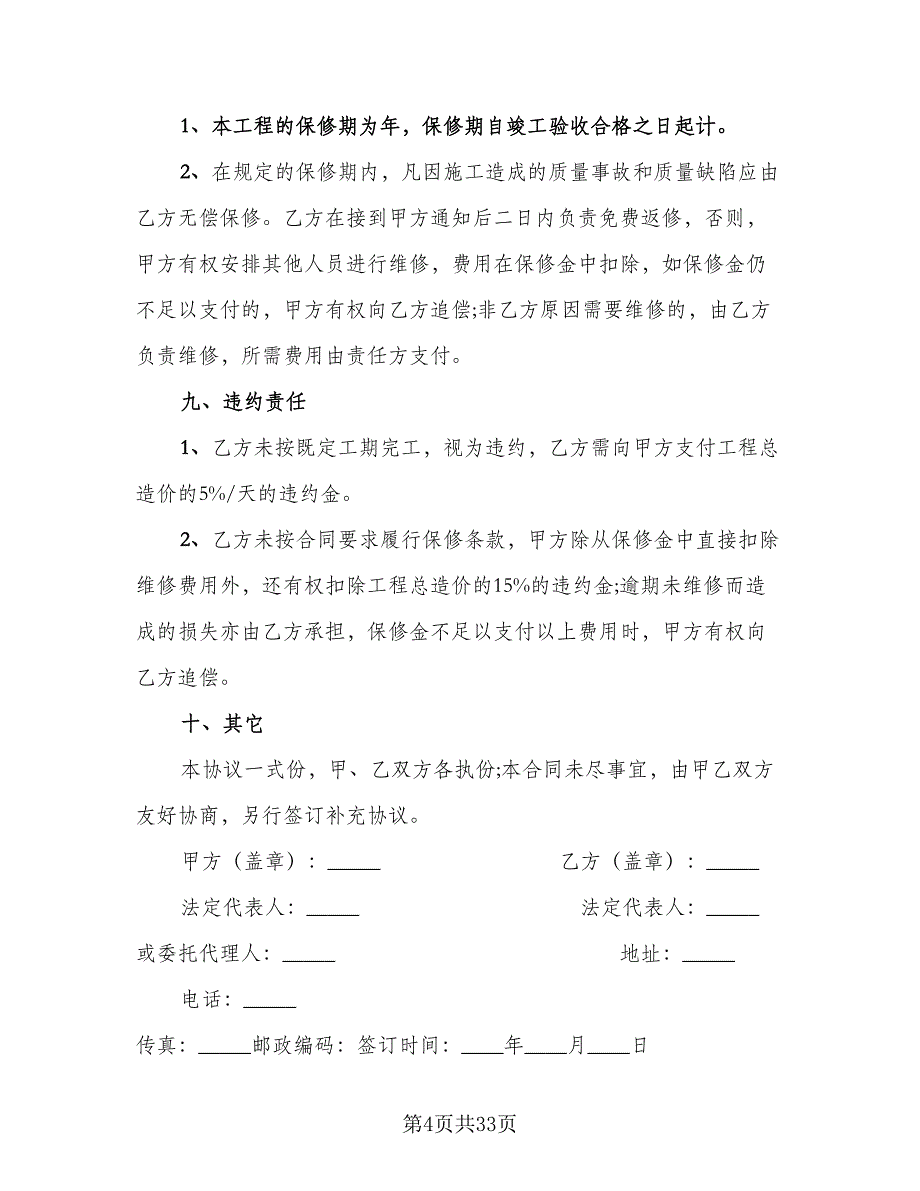 1、本工程的保修期为年，保修期自竣工验收合格之日起计。
2、在规定的保修期内，凡因施工造成的质量事故和质量缺陷应由
乙方无偿保修。乙方在接到甲方通知后二日内负责免费返修，否则，
甲方有权安排其他人员进行维修，费用在保修金中扣除，如保修金仍
不足以支付的，甲方有权向乙方追偿;非乙方原因需要维修的，由乙方
负责维修，所需费用由责任方支付。
九、违约责任
1、乙方未按既定工期完工，视为违约，乙方需向甲方支付工程总
造价的5%/天的违约金。
2、乙方未按合同要求履行保修条款，甲方除从保修金中直接扣除
维修费用外，还有权扣除工程总造价的15%的违约金;逾期未维修而造
成的损失亦由乙方承担，保修金不足以支付以上费用时，甲方有权向
乙方追偿。
十、其它
本协议一式份，甲、乙双方各执份;本合同未尽事宜，由甲乙双方
友好协商，另行签订补充协议。
甲方（盖章）：_____ 乙方（盖章）：_____
法定代表人：_____ 法定代表人：_____
或委托代理人：_____ 地址：_____
电话：_____
传真：_____邮政编码：签订时间：____年____月____日
第4页共33页